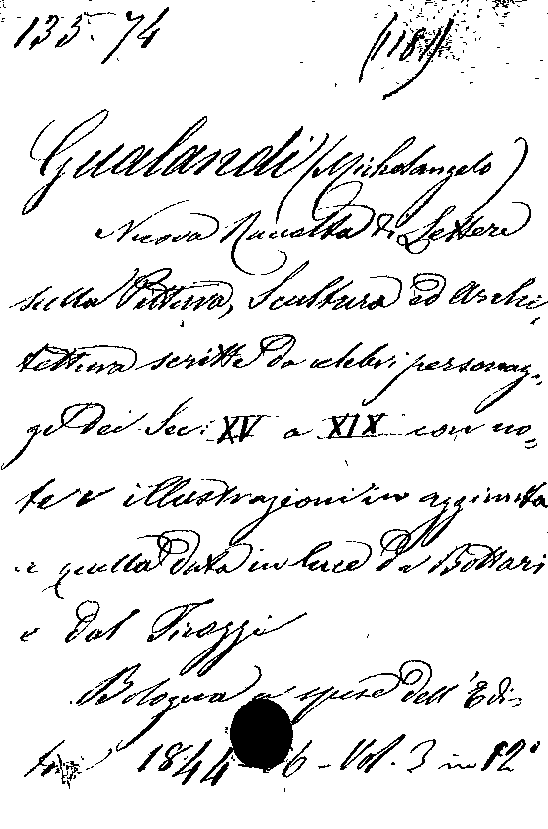 135. 74 (118)
Gualandi (Michelangelo)
Nuova Raccolta di Lettere
sulla Pittura, Scultura ed Archi,
tettura scritte da celebri personag,
gi dei Sec: XV a XIX con no=
te e illustrazioni in aggiunta
a quella data in luce da Bottari
e dal Ticozzi
Bologna a spese dell'Edi=
tore 1844 6 - Vol. 3 in 12°